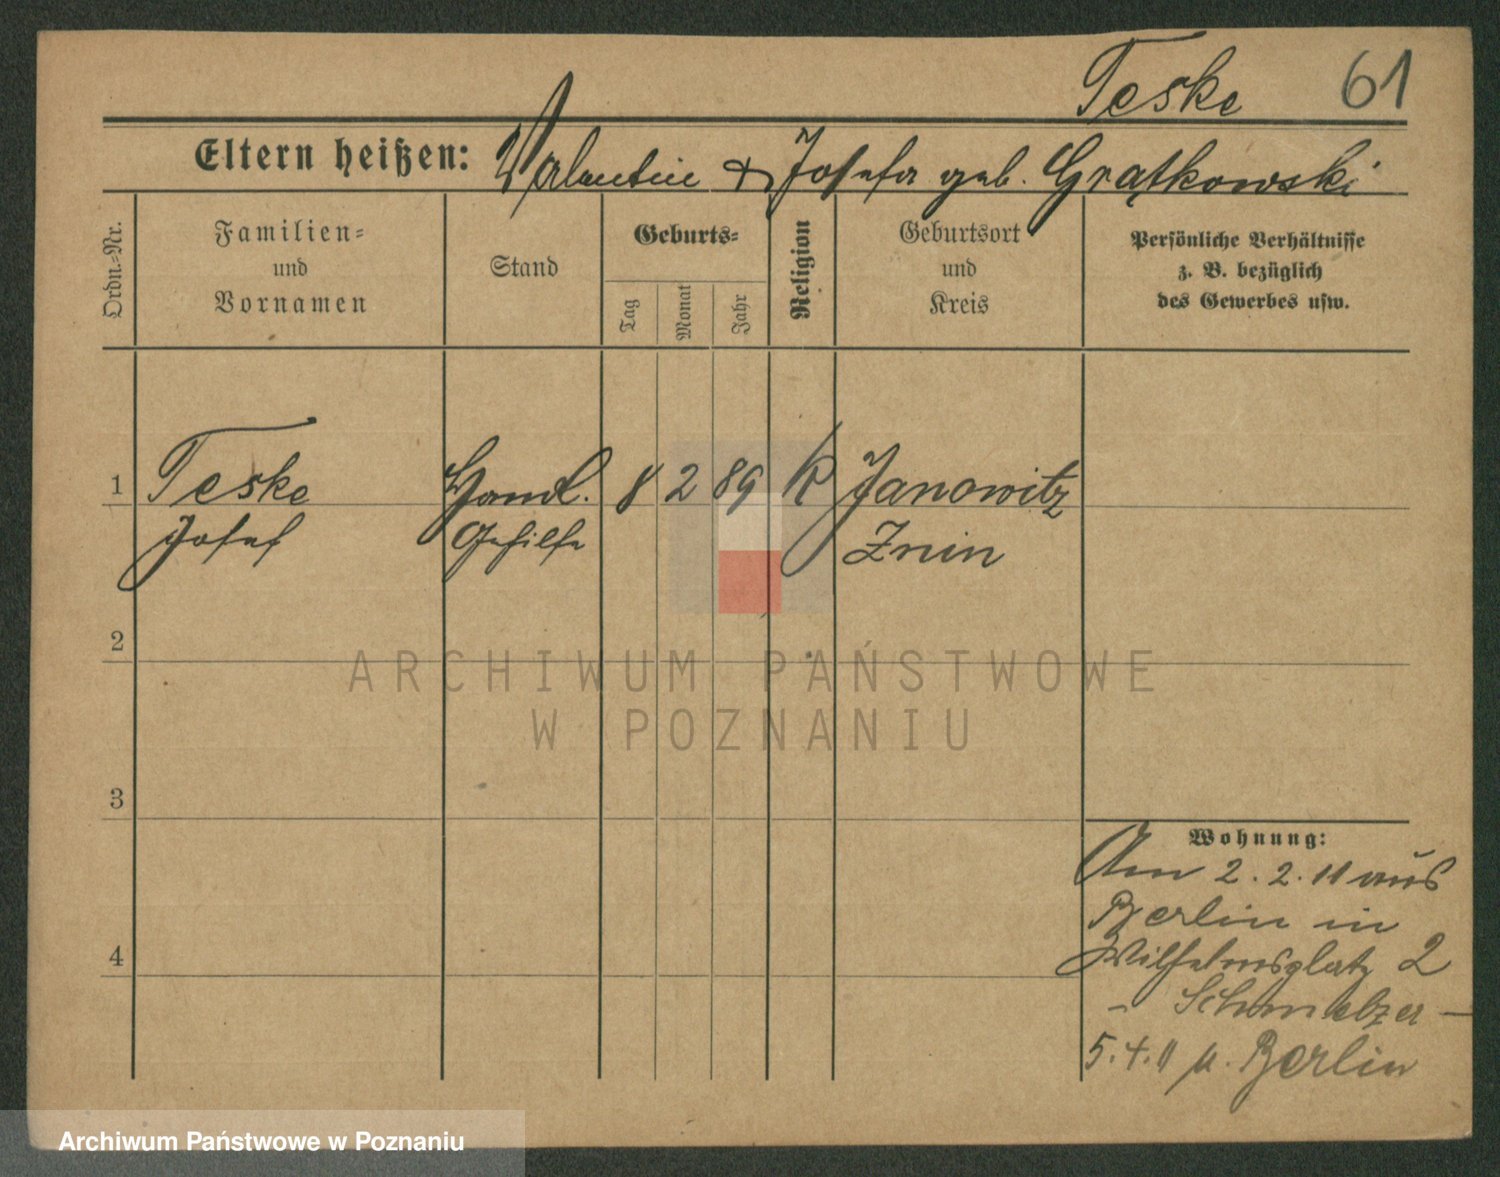 Teske 61
Eltern heißen: Valentin & Josefa geb. Grątkowski
Ordn.-Nr.
Familien-
und
Vornamen
Stand
Geburts-
Tag
Monat
Jahr
Religion
Geburtsort
und
Kreis
Persönliche Verhältnisse
z. B. bezüglich
des Gewerbes usw.
1 Teske Handl. 8 2 89 K Janowitz
Josef Gehilfe Znin
2
ARCHIWUM PAŃSTWOWE
W POZNANIU
3
Wohnung:
Am 2. 2. 11 aus
Berlin in
4 Wilhelmsplatz 2
- Schmelzer -
5. 4. 11 n. Berlin
Archiwum Państwowe w Poznaniu